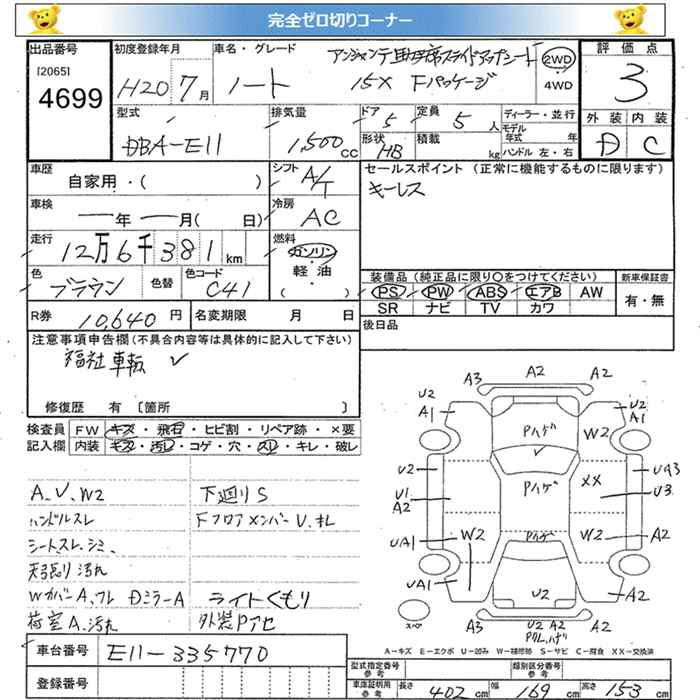 完全ゼロ切りコーナー
出品番号 初度登録年月 車名・グレード アンシャンテ助手席スライドアップシート 2WD 評価点
[2065] 4699 H20 7月 ノート 15X Fパッケージ ・ 4WD 3
型式 排気量 ドア 5 定員 5人 ディーラー・並行 外装 内装
DBA-E11 1,500cc 形状 HB 積載 kg モデル年式 年 D C
ハンドル 左・右
車歴 自家用・( ) シフト A/T セールスポイント (正常に機能するものに限ります)
キーレス
車検 年 月( 日) 冷房 AC
走行 12万6千381km 燃料 ガソリン・軽油 ( )
色 ブラウン 色替 色コード C41 装備品 (純正品に限り○をつけてください) 新車保証書
PS PW ABS エアB AW 有・無
SR ナビ TV カワ
R券 10,640円 名変期限 月 日 後日品
注意事項申告欄 (不具合内容等は具体的に記入して下さい)
福祉車輌 ✓
修復歴 有 [箇所 ]
検査員 FW キズ・飛石・ヒビ割・リペア跡・×要
記入欄 内装 キズ・汚レ・コゲ・穴・スレ・キレ・破レ
A、U、W2 下廻りS
ハンドルスレ Fフロアメンバー U、キレ
シートスレ・シミ
天張り汚れ
Wカバー A、ワレ DミラーA ライトくもり
荷室A、汚れ 外装Pアセ
A3 A2 A2
U2 A1 Pハゲ U2 A1
W2
U2 Pハゲ XX UA3
U1 A2 U3
UA1 W2 Pハゲ W2 A2
UA1 U2 A2
スペア A3 U2 A2 A2
Pワレハゲ
A-キズ E-エクボ U-凹み W-補修跡 S-サビ C-腐食 XX-交換済
車台番号 E11-335770
登録番号
型式指定番号 参考 類別区分番号 参考
車庫証明用 参考 長さ 402cm 幅 169cm 高さ 153cm